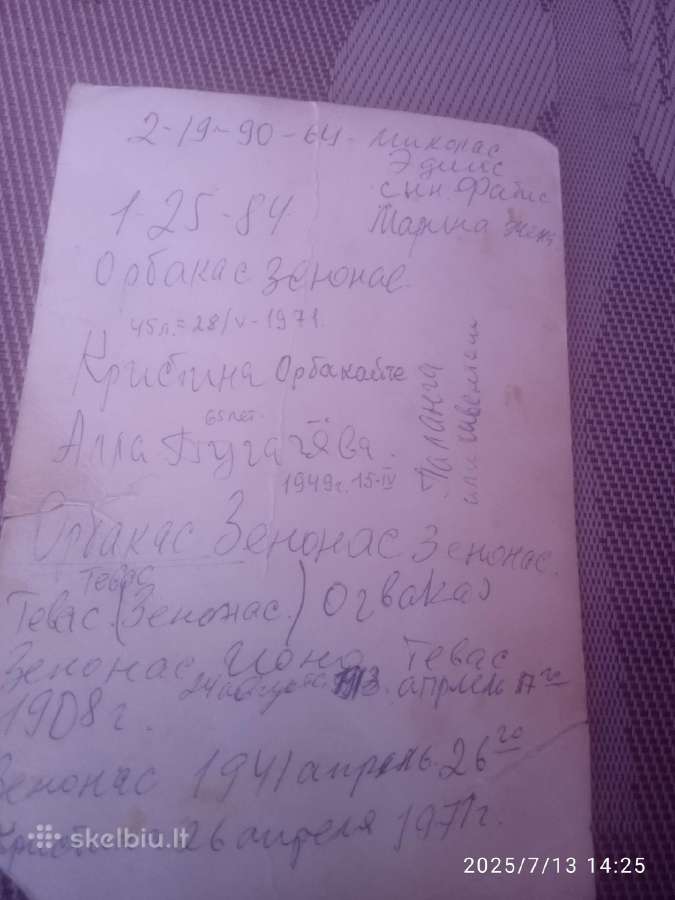 2-19-90-64 - Миколас
Эдиис
сын. Фабис
1-25-84
Марина жен.
Орбакас Зенонас
45л.=28/V-1971.
Кристина Орбакайте
65 лет.
Алла Пугачёва.
1949г. 15-IV
Паланга
или Швентой
Орбакас Зенонас Зенонас.
Тевас
Тевас (Зенонас.)
Зенонас Йоно Тевас
24 августа 1913. апрель 17го
1908г.
Зенонас 1941 апрель 26го
26 апреля 1971г.
skelbiu.lt
2025/7/13 14:25